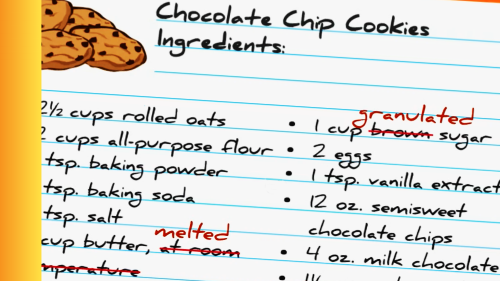 Chocolate Chip Cookies
Ingredients:
2½ cups rolled oats
2 cups all-purpose flour
tsp. baking powder
tsp. baking soda
tsp. salt
melted
cup butter, at room
granulated
• 1 cup brown sugar
• 2 eggs
• 1 tsp. vanilla extract
• 12 oz. semisweet
chocolate chips
• 4 oz. milk chocolate